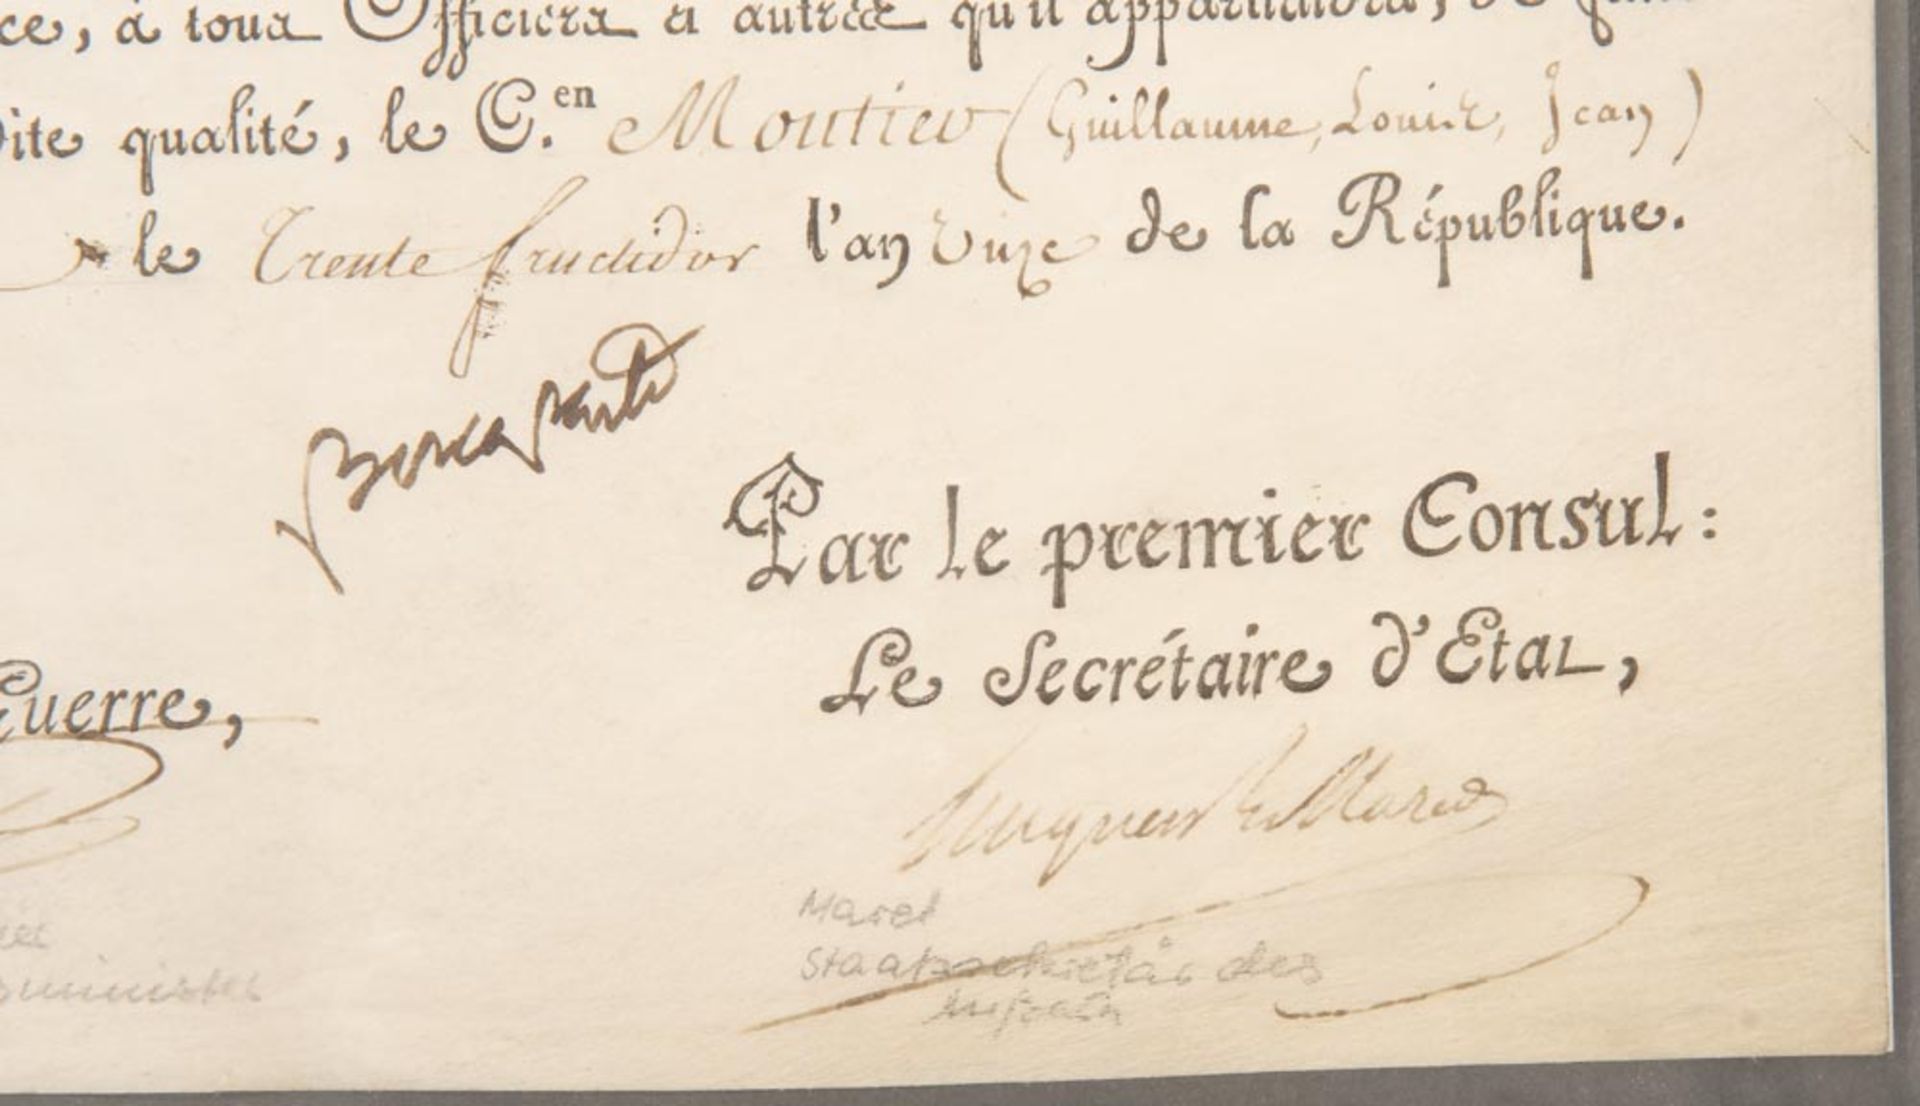 ce, à tous Officiers et autres qu'il appartiendra, de
dite qualité, le C.en Moutier (Guillaume, Louis, Jean)
le Trente fructidor l'an onze de la République.
Bonaparte
Par le premier Consul:
Guerre,
Le Secrétaire d'Etat,
Hugues B. Maret
Maret
Staatssekretär des